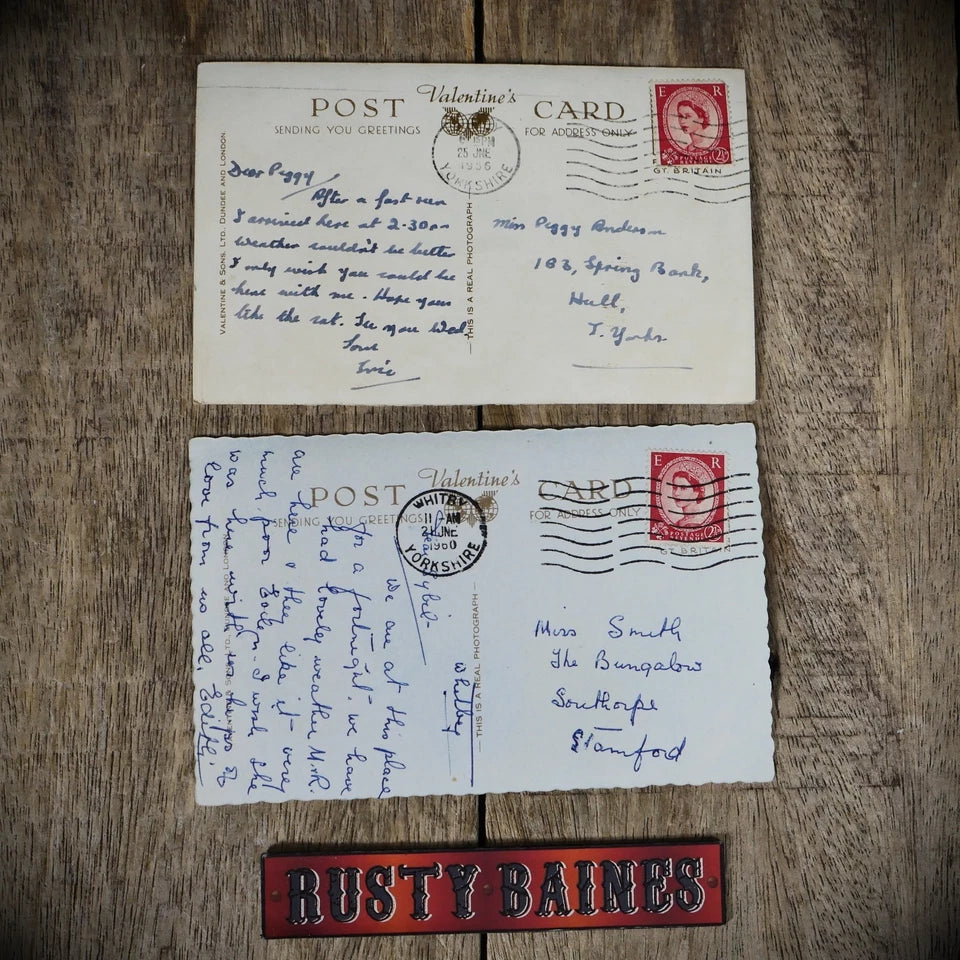 POST Valentine's CARD
SENDING YOU GREETINGS
FOR ADDRESS ONLY
E R
POSTAGE REVENUE 2½
GT. BRITAIN
PM
25 JNE
1956
YORKSHIRE
VALENTINE & SONS, LTD. DUNDEE AND LONDON
THIS IS A REAL PHOTOGRAPH
Dear Peggy
After a fast run
I arrived here at 2-30
weather couldn't be better
I only wish you could be
here with me. Hope you
like the See you Wed
Love
Miss Peggy Anderson
183, Spring Bank,
Hull,
Yorks
POST Valentine's CARD
SENDING YOU GREETINGS
FOR ADDRESS ONLY
E R
POSTAGE REVENUE 2½
GT. BRITAIN
WHITBY
11 AM
JNE
1960
YORKSHIRE
THIS IS A REAL PHOTOGRAPH
Whitby
We are at this place
for a fortnight. we have
had lovely weather
are here & they like it very
much. poor I wish she
was here with us
love from us all, Edith.
Miss Smith
The Bungalow
Southorpe
Stamford
RUSTY BAINES